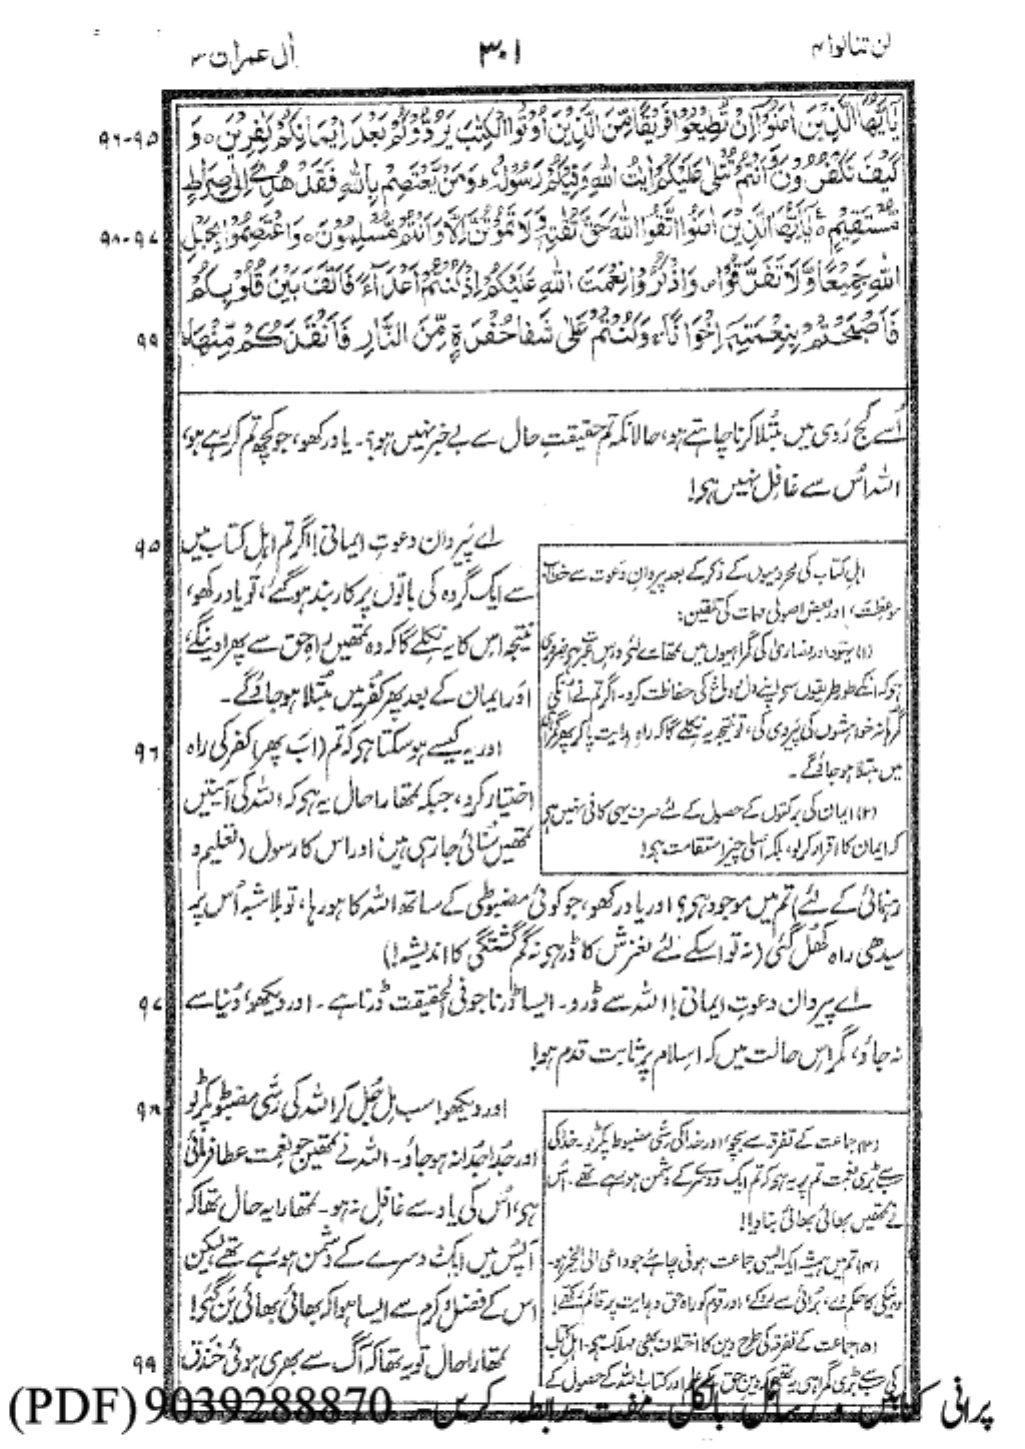 لن تنالوا ۴
۳۰۱
آل عمران ۳
یٰۤاَیُّهَا الَّذِیْنَ اٰمَنُوْۤا اِنْ تُطِیْعُوْا فَرِیْقًا مِّنَ الَّذِیْنَ اُوْتُوا الْكِتٰبَ یَرُدُّوْكُمْ بَعْدَ اِیْمَانِكُمْ كٰفِرِیْنَ ۝ وَ
۹۵-۹۶
كَیْفَ تَكْفُرُوْنَ وَاَنْتُمْ تُتْلٰى عَلَیْكُمْ اٰیٰتُ اللّٰهِ وَفِیْكُمْ رَسُوْلُهٗ ؕ وَمَنْ یَّعْتَصِمْ بِاللّٰهِ فَقَدْ هُدِیَ اِلٰى صِرَاطٍ
مُّسْتَقِیْمٍ ۝ یٰۤاَیُّهَا الَّذِیْنَ اٰمَنُوا اتَّقُوا اللّٰهَ حَقَّ تُقٰتِهٖ وَلَا تَمُوْتُنَّ اِلَّا وَاَنْتُمْ مُّسْلِمُوْنَ ۝ وَاعْتَصِمُوْا بِحَبْلِ
۹۷-۹۸
اللّٰهِ جَمِیْعًا وَّلَا تَفَرَّقُوْا ۪ وَاذْكُرُوْا نِعْمَتَ اللّٰهِ عَلَیْكُمْ اِذْ كُنْتُمْ اَعْدَآءً فَاَلَّفَ بَیْنَ قُلُوْبِكُمْ
فَاَصْبَحْتُمْ بِنِعْمَتِهٖۤ اِخْوَانًا ۚ وَكُنْتُمْ عَلٰى شَفَا حُفْرَةٍ مِّنَ النَّارِ فَاَنْقَذَكُمْ مِّنْهَا ؕ
۹۹
اُسے کج رَوی میں مُبتلا کرنا چاہتے ہو، حالانکہ تم حقیقتِ حال سے بے خبر نہیں ہو؟۔ یاد رکھو، جو کچھ تم کر رہے ہو،
اللہ اُس سے غافل نہیں ہی!
اے پَیروانِ دعوتِ ایمانی! اگر تم اہلِ کتاب میں
۹۵
سے ایک گروہ کی باتوں پر کاربند ہو گئے، تو یاد رکھو،
نتیجہ اس کا یہ نکلے گا کہ وہ تمھیں راہِ حق سے پھرا دینگے،
اور ایمان کے بعد پھر کُفر میں مُبتلا ہو جاؤ گے۔
اور یہ کیسے ہو سکتا ہی کہ تم (اب پھر) کفر کی راہ
۹۶
اختیار کرو، جبکہ تمھارا حال یہ ہی کہ اللہ کی آیتیں
تمھیں سُنائی جا رہی ہیں، اور اس کا رسول (تعلیم و
اہلِ کتاب کی محرومیوں کے ذکر کے بعد پیروانِ دعوت سے خطاب
موعظت، اور بعض اصولی مہمات کی تلقین:
(۱) یہود اور نصاریٰ کی گمراہیوں میں تمھارے لئے درسِ عبرت ہی ضروری
ہی کہ انکے طور طریقوں سے اپنے دل و دماغ کی حفاظت کرو۔ اگر تم نے اُنکی
گمراہانہ خواہشوں کی پَیروی کی، تو نتیجہ یہ نکلے گا کہ راہِ ہدایت پا کر پھر گمراہی
میں مبتلا ہو جاؤ گے۔
(۲) ایمان کی برکتوں کے حصول کے لئے صرف یہی کافی نہیں ہی
کہ ایمان کا اقرار کر لو، بلکہ اصلی چیز استقامت ہی!
رہنمائی کے لئے) تم میں موجود ہی؟ اور یاد رکھو، جو کوئی مضبوطی کے ساتھ اللہ کا ہو رہا، تو بلاشبہ اُس پر
سیدھی راہ کھُل گئی (نہ تو اسکے لئے لغزش کا ڈر ہی نہ گم گشتگی کا اندیشہ!)
اے پیروانِ دعوتِ ایمانی! اللہ سے ڈرو۔ ایسا ڈرنا جو فی الحقیقت ڈرنا ہے۔ اور دیکھو، دُنیا سے
۹۷
نہ جاؤ، مگر اِس حالت میں کہ اسلام پر ثابت قدم ہو!
اور دیکھو! سب مل جُل کر اللہ کی رسّی مضبوط پکڑ لو
۹۸
اور جُدا جُدا نہ ہو جاؤ۔ اللہ نے تمھیں جو نعمت عطا فرمائی
ہی، اُس کی یاد سے غافل نہ ہو۔ تمھارا یہ حال تھا کہ
آپس میں ایک دوسرے کے دشمن ہو رہے تھے، لیکن
اس کے فضل و کرم سے ایسا ہوا کہ بھائی بھائی بَن گئے!
تمھارا حال تو یہ تھا کہ آگ سے بھری ہوئی خندق
۹۹
(۳) جماعت کے تفرقہ سے بچو، اور خدا کی رسّی مضبوط پکڑ لو۔ خدا کی
سب سے بڑی نعمت تم پر یہ ہی کہ تم ایک دوسرے کے دشمن ہو رہے تھے۔ اُس
نے تمھیں بھائی بھائی بنا دیا!
(۴) تم میں ہمیشہ ایک ایسی جماعت ہونی چاہئے جو داعی الی الخیر ہو۔
وہ نیکی کا حکم دے، بُرائی سے روکے، اور قوم کو راہِ حق و ہدایت پر قائم رکھے!
(۵) جماعت کے تفرقہ کی طرح دین کا اختلاف بھی مہلک ہی، اہلِ کتاب
کی سب سے بڑی گمراہی یہ تھی کہ دینِ حق کے علم اور کتاب اللہ کے حصول کے
پرانی کتابیں و رسائل بالکل مفت۔ رابطہ کریں۔ 9039288870 (PDF)